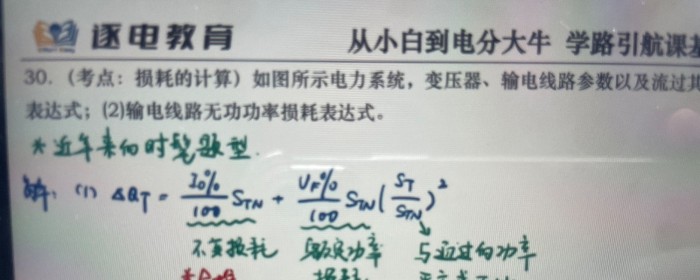 逐电教育
从小白到电分大牛 学路引航课基
30.（考点：损耗的计算）如图所示电力系统，变压器、输电线路参数以及流过其
表达式；(2)输电线路无功功率损耗表达式。
*近年来的时髦题型.
解：(1) ΔQT = I0%/100 STN + UK%/100 STN(ST/STN)²
不变损耗 与额定功率 与通过的功率
损耗